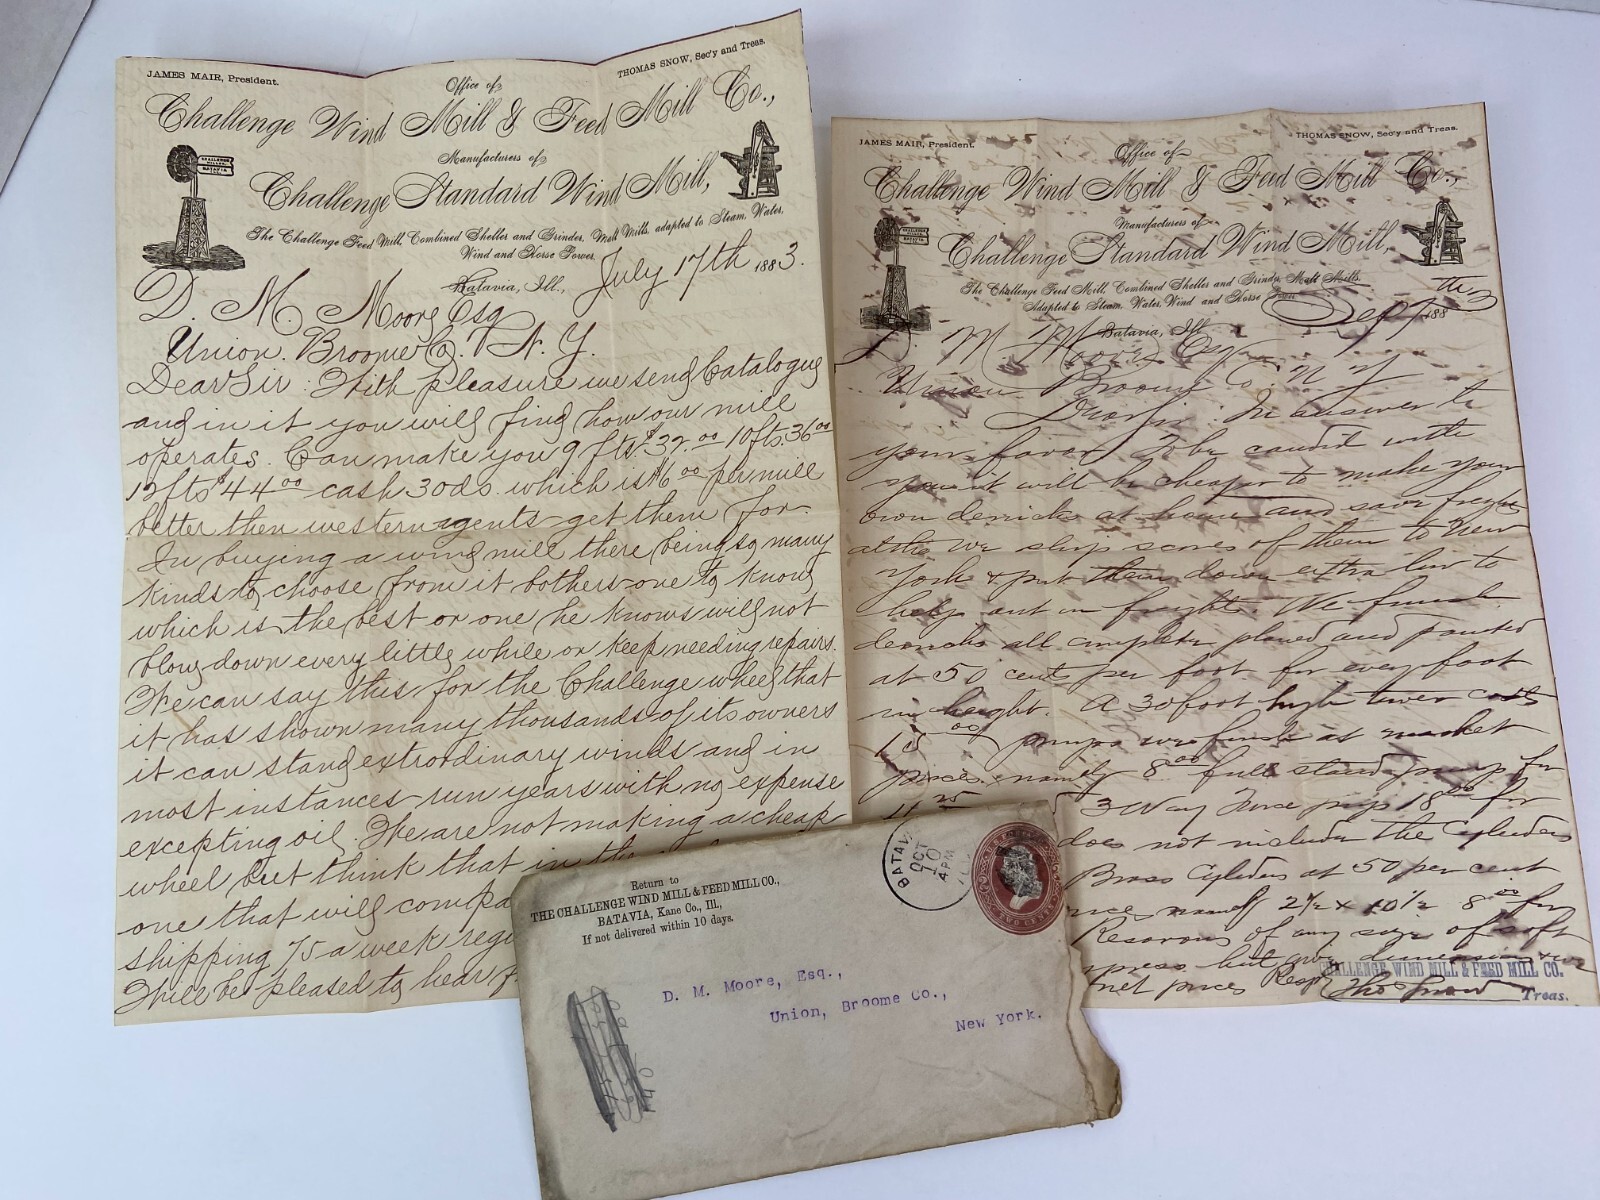 JAMES MAIR, President.
THOMAS SNOW, Sec'y and Treas.
Office of
Challenge Wind Mill & Feed Mill Co.,
Manufacturers of
CHALLENGE
BATAVIA
Challenge Standard Wind Mill,
The Challenge Feed Mill, Combined Sheller and Grinder, Malt Mills, adapted to Steam, Water,
Wind and Horse Power.
Batavia, Ill., July 17th 1883.
D. M. Moore Esq
Union. Broome Co. N. Y.
Dear Sir: With pleasure we send Catalogue
and in it you will find how our mill
operates. Can make you 9 fts $32.00 10fts. 36.00
12fts $44.00 cash 30ds. which is $6.00 per mill
better then western agents get them for.
In buying a wind mill there being so many
kinds to choose from it bothers one to know
which is the best or one he knows will not
blow down every little while or keep needing repairs.
We can say this for the Challenge wheel that
it has shown many thousands of its owners
it can stand extrordinary winds and in
most instances run years with no expense
excepting oil. We are not making a cheap
wheel but think that in the
one that will compa
shipping 75 a week regu
Will be pleased to hear f
JAMES MAIR, President.
THOMAS SNOW, Sec'y and Treas.
Office of
Challenge Wind Mill & Feed Mill Co.,
Manufacturers of
Challenge Standard Wind Mill,
The Challenge Feed Mill, Combined Sheller and Grinder, Malt Mills,
Adapted to Steam, Water, Wind and Horse Power.
Batavia, Ill. Sept 188
D. M. Moore Esq
Union Broome Co. N Y
Dear Sir: In answer to
your favor To be candid with
you it will be cheaper to make your
own derricks at home and save freight
altho we ship scores of them to New
York & put them down extra low to
help out on freight. We furnish
derricks all complete planed and painted
at 50 cents per foot for every foot
in height. A 30 foot high tower costs
15.00 pumps we furnish at market
price namely 8.00 full stand pump for
3 Way Force pump 18.00 for
does not include the Cylinders
Brass Cylinders at 50 per cent
namely 2½ x 10½ 8.00 for
Resarvous of any size of soft
press but give dimensions & we
net prices Respy
CHALLENGE WIND MILL & FEED MILL CO.
Thos Snow Treas.
Return to
THE CHALLENGE WIND MILL & FEED MILL CO.,
BATAVIA, Kane Co., Ill,
If not delivered within 10 days.
BATAV
OCT
10
4 PM
TWO CENTS
D. M. Moore, Esq.,
Union, Broome Co.,
New York.